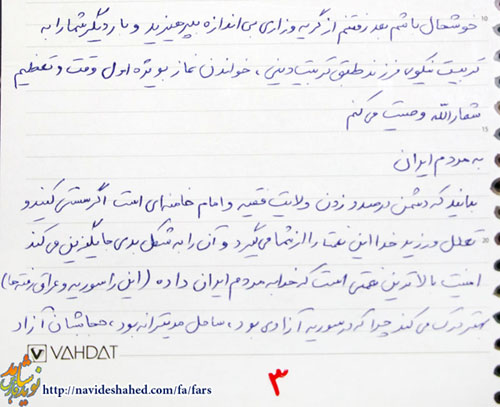 خوشحال باشم بعد رفتنم از گریه وزاری بی اندازه بپرهیزید و بار دیگر شما را به
تربیت نیکوی فرزند طبق تربیت دینی ، خواندن نماز بویژه اول وقت و تعظیم
شعائرالله وصیت می کنم
به مردم ایران
بدانید که دشمن درصدد زدن ولایت فقیه و امام خامنه ای است اگر سستی کنید و
تعلل ورزید خدا این نعمت را از شما می گیرد و آن را به شکل بدی جایگزین می کند
امنیت بالاترین نعمتی است که خدا به مردم ایران داده (این را سوریه و عراق رفته ها)
بهتر درک می کنند چرا که در سوریه آزادی بود ، ساحل مدیترانه بود ، حجابشان آزاد
VAHDAT
نوید شاهد
http://navideshahed.com/fa/fars
۳
10
15
20